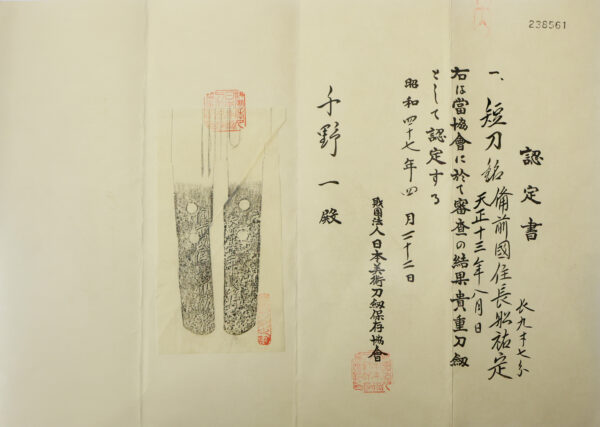 238561
認定書
一、短刀 銘 備前國住長船祐定
天正十三年八月日
長九寸七分
右は當協會に於て審査の結果貴重刀劔
として認定する
昭和四十七年四月二十二日
財團法人日本美術刀劔保存協會
千野一殿